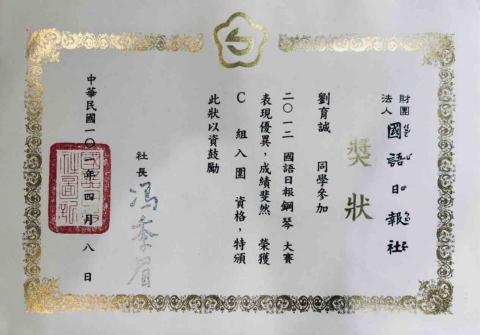 財團法人 國語日報社
獎狀
劉育誠 同學參加
二〇一二 國語日報鋼琴大賽
表現優異，成績斐然 榮獲
C 組入圍 資格，特頒
此狀以資鼓勵
社長 馮季眉
中華民國一〇一年四月八日